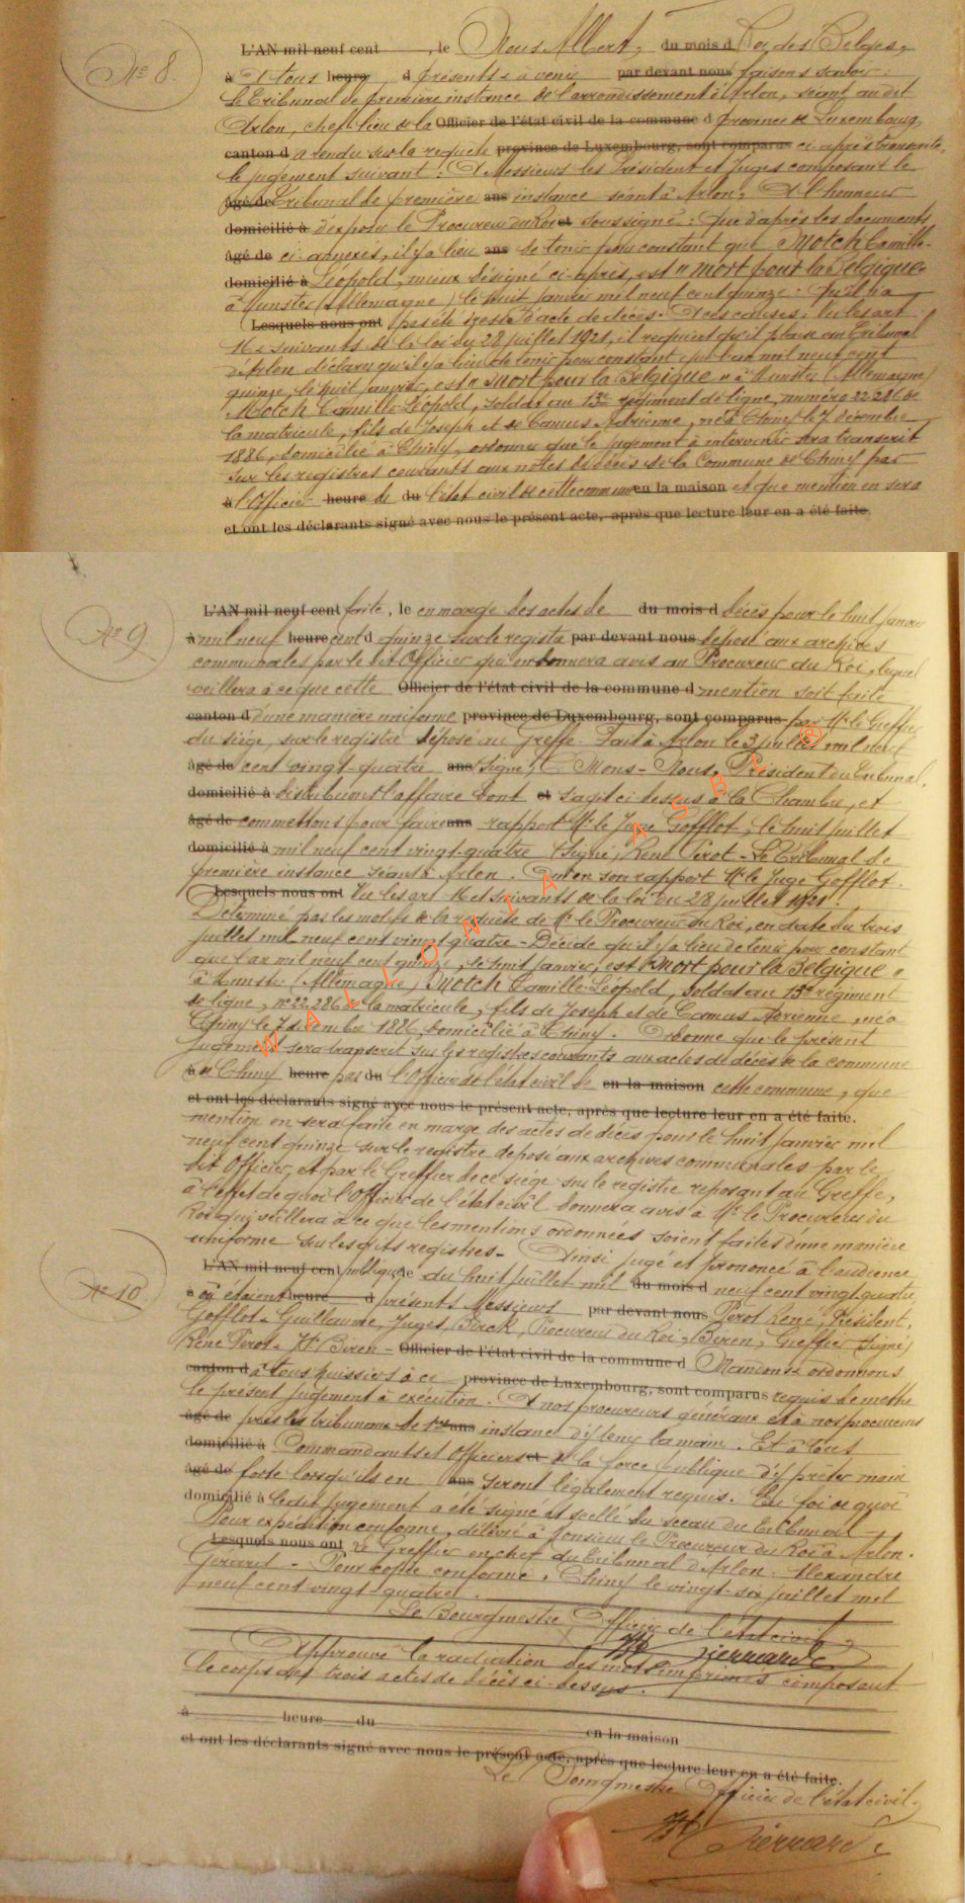 N° 8.
L'AN mil neuf cent , le Nous Albert, du mois d Roi des Belges,
à A tous heure d présents & à venir par devant nous faisons savoir :
Le Tribunal de première instance de l'arrondissement d'Arlon, séant au dit
Arlon, chef-lieu de la Officier de l'état civil de la commune d province de Luxembourg,
canton d a rendu sur la requête province de Luxembourg, sont comparus ci-après transcrite,
le jugement suivant : A Messieurs les Président et Juges composant le
âgé de Tribunal de première ans instance séant à Arlon, A l'honneur
domicilié à d'exposer le Procureur du Roi et soussigné : Que d'après les documents
âgé de ci-annexés, il y a lieu ans de tenir pour constant que Motch Camille-
domicilié à Léopold, mieux désigné ci-après, est " mort pour la Belgique "
à Munster (Allemagne) le huit janvier mil neuf cent quinze. Qu'il n'a
Lesquels nous ont pas été dressé d'acte de décès. A ces causes : Vu les art
16 & suivants de la loi du 28 juillet 1921, il requiert qu'il plaise au Tribunal
d'Arlon déclarer qu'il y a lieu de tenir pour constant que l'an mil neuf cent
quinze, le huit janvier, est " mort pour la Belgique " à Munster (Allemagne)
Motch Camille-Léopold, soldat au 13e régiment de ligne, numéro 22286 de
la matricule, fils de Joseph et de Camus Adrienne, né à Chiny le 7 décembre
1886, domicilié à Chiny, ordonner que le jugement à intervenir sera transcrit
sur les registres courants aux actes de décès de la Commune de Chiny par
à l'Officier heure de du l'état civil de cette commune en la maison et que mention en sera
et ont les déclarants signé avec nous le présent acte, après que lecture leur en a été faite.
N° 9.
L'AN mil neuf cent faite, le en marge des actes de du mois d décès pour le huit janvier
à mil neuf heure cent d quinze sur le registre par devant nous déposé aux archives
communales par le dit Officier qui en donnera avis au Procureur du Roi, lequel
veillera à ce que cette Officier de l'état civil de la commune d mention soit faite
canton d d'une manière uniforme province de Luxembourg, sont comparus par Mr le Greffier
du siège, sur le registre déposé au Greffe. Fait à Arlon le 3 juillet mil neuf
âgé de cent vingt-quatre ans (signé) Nous, Président du Tribunal,
domicilié à distribuons l'affaire dont et s'agit ci-dessus à la Chambre, et
âgé de commettons pour faire ans rapport Mr le Juge Gofflot, le huit juillet
domicilié à mil neuf cent vingt-quatre (signé) René Pérot - Le Tribunal de
première instance séant à Arlon. Ouï en son rapport Mr le Juge Gofflot.
Lesquels nous ont Vu les art 16 et suivants de la loi du 28 juillet 1921.
Déterminé par les motifs de la requête de Mr le Procureur du Roi, en date du trois
juillet mil neuf cent vingt quatre - Décide qu'il y a lieu de tenir pour constant
que l'an mil neuf cent quinze, le huit janvier, est " mort pour la Belgique "
à Munster (Allemagne) Motch Camille-Léopold, soldat au 13e régiment
de ligne, n° 22,286 de la matricule, fils de Joseph et de Camus Adrienne, né à
Chiny le 7 décembre 1886, domicilié à Chiny. Ordonne que le présent
jugement sera transcrit sur les registres courants aux actes de décès de la commune
à de Chiny heure par du l'Officier de l'état civil de en la maison cette commune, que
et ont les déclarants signé avec nous le présent acte, après que lecture leur en a été faite.
mention en sera faite en marge des actes de décès pour le huit janvier mil
neuf cent quinze sur le registre déposé aux archives communales par le
dit Officier, et par le Greffier de ce siège sur le registre reposant au Greffe,
à l'effet de quoi l'Officier de l'état civil donnera avis à Mr le Procureur du
Roi qui veillera à ce que les mentions ordonnées soient faites d'une manière
uniforme sur les dits registres - Ainsi jugé et prononcé à l'audience
N° 10.
L'AN mil neuf cent publique, le du huit juillet mil du mois d neuf cent vingt-quatre
à où étaient heure d présents Messieurs par devant nous Pérot René, Président,
Gofflot & Guillaume, Juges, Procureur du Roi, Biren, Greffier (signé)
René Pérot - Biren - Officier de l'état civil de la commune d Mandons & ordonnons
canton d à tous huissiers à ce province de Luxembourg, sont comparus requis de mettre
le présent jugement à exécution. A nos procureurs généraux et à nos procureurs
âgé de près les tribunaux de 1re ans instance d'y tenir la main. Et à tous
domicilié à Commandants et Officiers et de la force publique d'y prêter main
âgé de forte lorsqu'ils en ans seront légalement requis. En foi de quoi
domicilié à le dit jugement a été signé et scellé du sceau du Tribunal
Pour expédition conforme, délivré à Monsieur le Procureur du Roi à Arlon.
Lesquels nous ont Le Greffier en chef du Tribunal d'Arlon. Alexandre
Gérard - Pour copie conforme. Chiny le vingt-six juillet mil
neuf cent vingt-quatre.
Le Bourgmestre Officier de l'état civil,
Approuvé la radiation des mots imprimés composant
le corps des trois actes de décès ci-dessus.
à heure du en la maison
et ont les déclarants signé avec nous le présent acte, après que lecture leur en a été faite.
Le Bourgmestre Officier de l'état civil,
WALLONIA ASBL ®